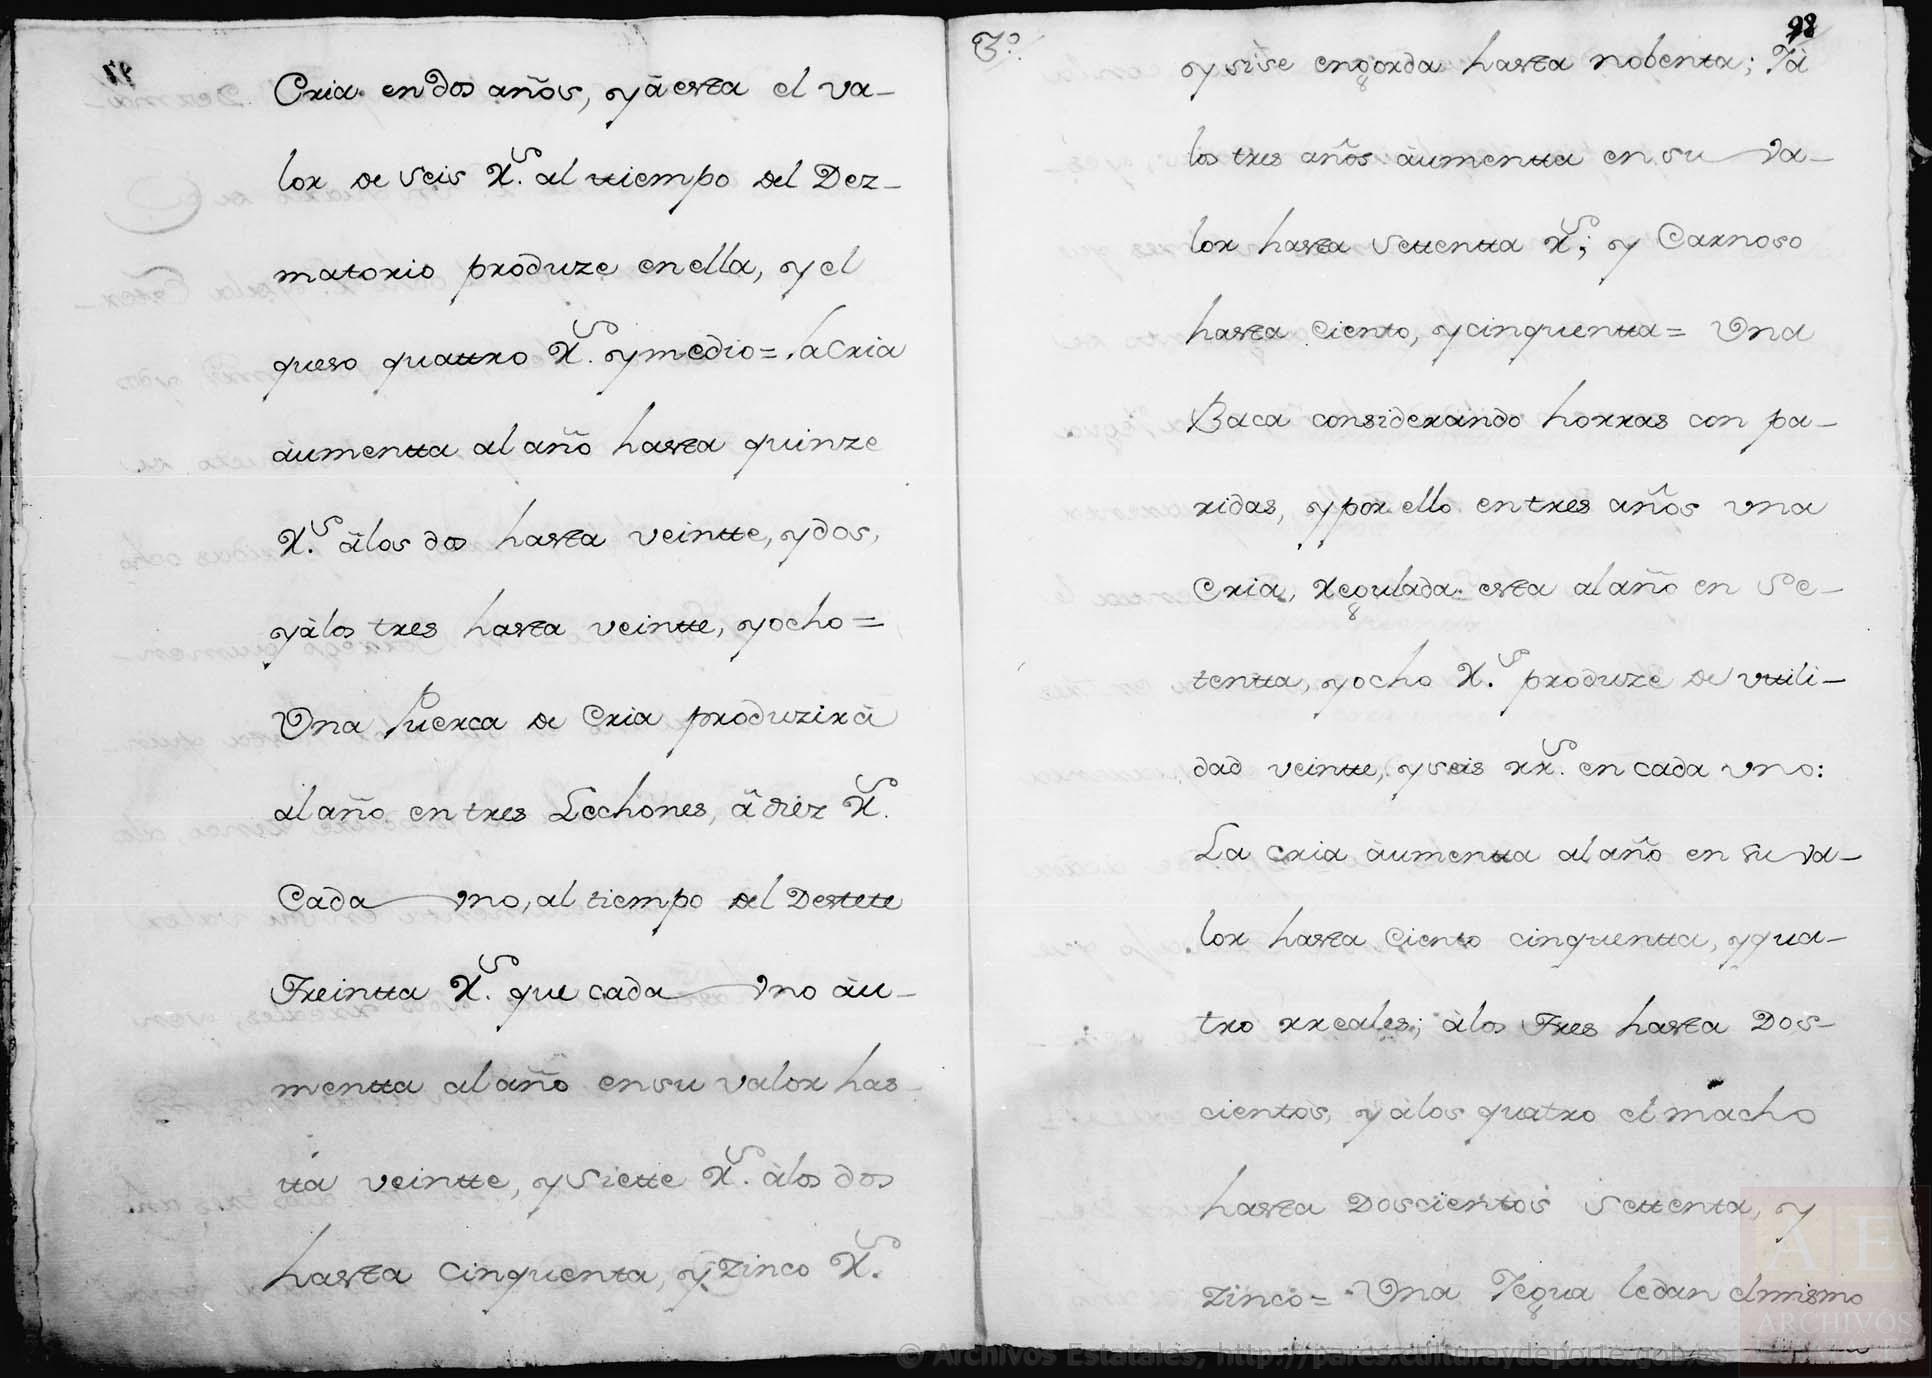 Cria en dos años, y à esta el va-
lor de seis R.s al ttiempo del Dez-
matorio produze en ella, y el
queso quattro R.s y medio= la cria
àumentta al año hasta quinze
R.s àlos dos hasta veintte, y dos,
y àlos tres hasta veintte, y ocho=
Una Puerca de Cria produzirà
al año en tres Lechones, à diez R.s
Cada vno, al tiempo del Destete
Treintta R.s que cada vno àu-
mentta al año en su valor has-
tta veintte, y siette R.s àlos dos
hasta cinquenta, y zinco R.s
98
y si se engorda hasta nobenta; Yà
los tres años àumentta en su va-
lor hasta settentta R.s; y Carnoso
hasta Ciento, y cinquentta= Una
Baca considerando horras con pa-
ridas, y por ello en tres años vna
Cria, Regulada esta al año en Se-
tentta, y ocho R.s produze de vttili-
dad veintte, y seis rr.s en cada vno:
La cria àumentta al año en su va-
lor hasta Ciento cinquentta, y qua-
tro rreales; àlos Tres hasta Dos-
cientos, y àlos quatro el macho
hasta Doscientos settenta, y
zinco= Una Yegua le dan el mismo
ARCHIVOS
© Archivos Estatales, http://pares.culturaydeporte.gob.es